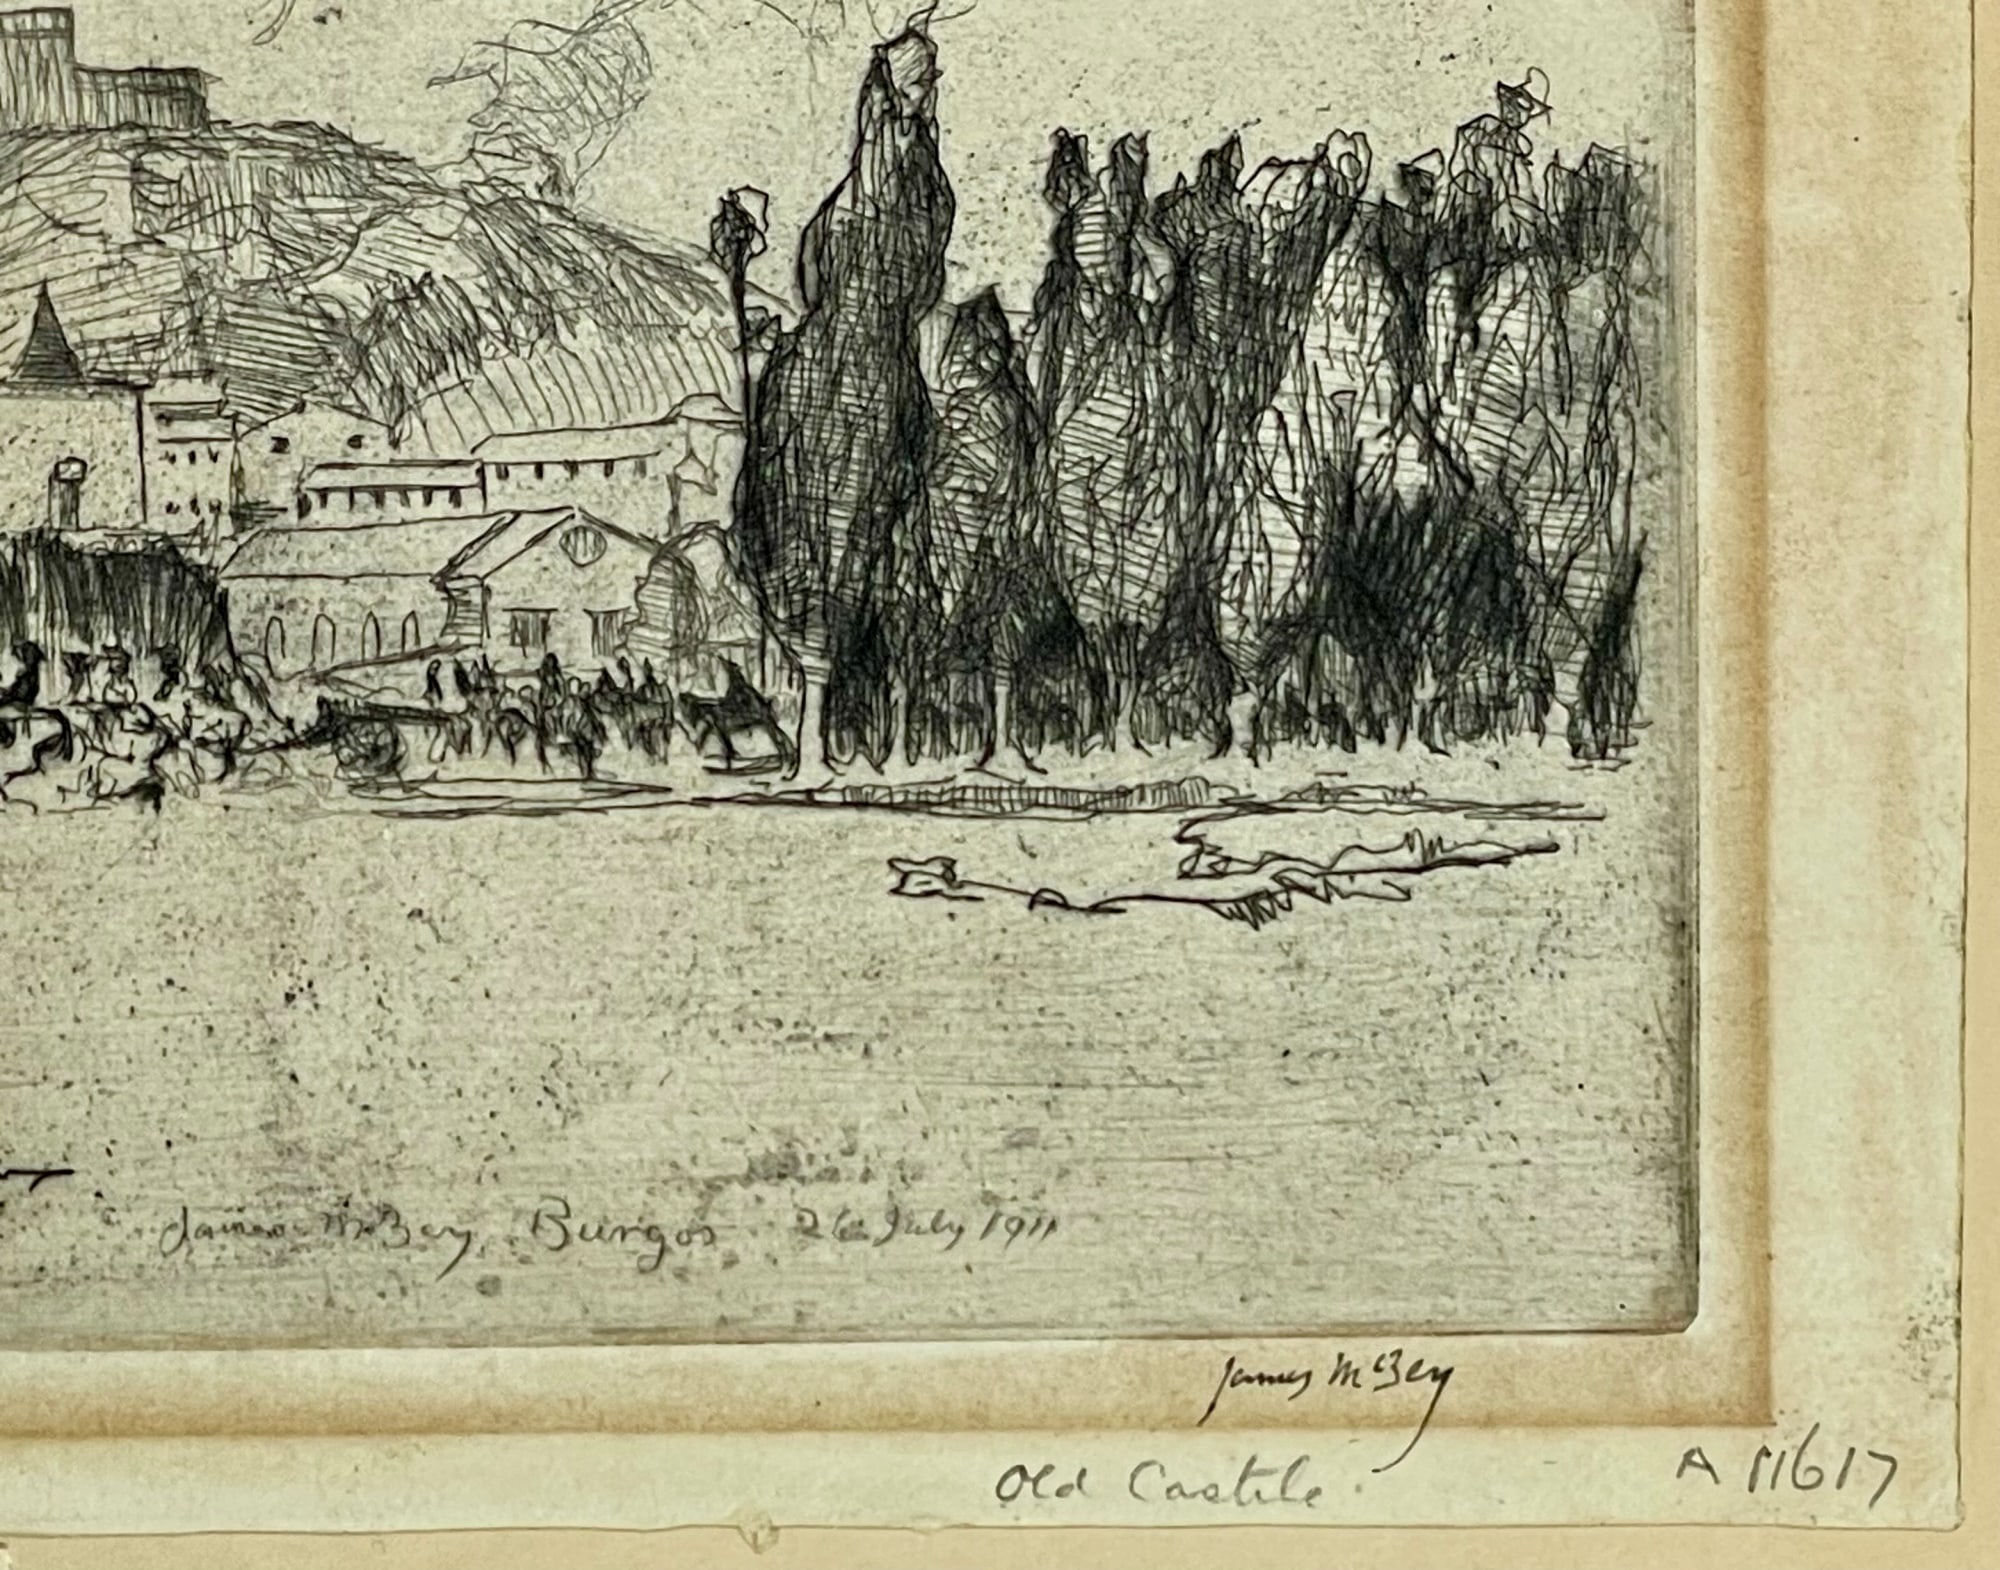 James McBey Burgos 26 July 1911
James McBey
Old Castile.
A 11617